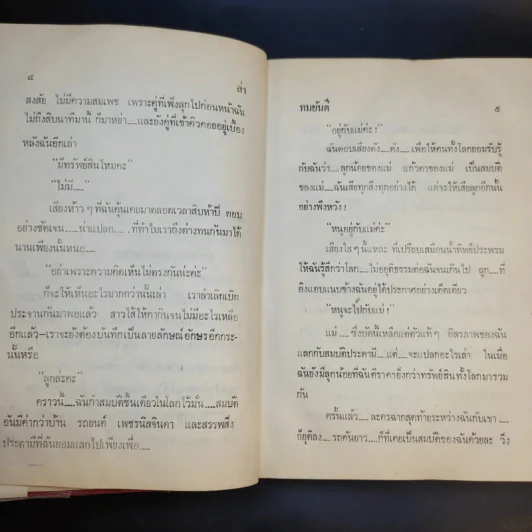 ๔
ล่า
สงสัย ไม่มีความสมเพช เพราะคู่ที่เพิ่งลุกไปก่อนหน้าฉัน
ไม่ถึงสิบนาทีมานี้ ก็มาหย่า....และยังคู่ที่เข้าคิวคอยอยู่เบื้อง
หลังฉันอีกเล่า
"มีทรัพย์สินไหมคะ"
"ไม่มี...."
เสียงห้าว ๆ ที่ฉันคุ้นเคยมาตลอดเวลาสิบห้าปี ตอบ
อย่างชัดเจน.....น่าแปลก....ที่ทำไมเราถึงต่างทนกันมาได้
นานเพียงนั้นหนอ....
"อย่าเพราะความคิดเห็นไม่ตรงกันน่ะค่ะ"
ก็จะให้เห็นอะไรมากกว่านั้นเล่า เราล้าเลิกเบิก
ประจานกันมาพอแล้ว สาวไส้ให้กากินจนไม่มีอะไรเหลือ
อีกแล้ว—เราจะยังต้องบันทึกเป็นลายลักษณ์อักษรอีกกระ-
นั้นหรือ
"ลูกล่ะคะ"
คราวนี้....ฉันกำสมบัติชิ้นเดียวในโลกไว้มั่น....สมบัติ
อันมีค่ากว่าบ้าน รถยนต์ เพชรนิลจินดา และสรรพสิ่ง
ประดามีที่ฉันยอมแลกไปเพียงเพื่อ....
ทมยันตี
๕
"อยู่กับแม่ค่ะ!"
ฉันตอบเสียงดัง....ดัง....เพื่อให้คนทั้งโลกยอมรับรู้
กับฉันว่า....ลูกน้อยของแม่ แก้วตาของแม่ เป็นสมบัติ
ของแม่....ฉันเสียทุกสิ่งทุกอย่างได้ แต่จะให้เสียลูกอีกนั้น
อย่าพึงหวัง!
"หนูอยู่กับแม่ค่ะ"
เสียงใส ๆ นี้แหละ ที่เปรียบเสมือนน้ำทิพย์ประพรม
ให้ฉันรู้สึกว่าโลก....ไม่อยุติธรรมต่อฉันจนเกินไป ลูก....ที่
อิงแอบแนบข้างฉันอยู่ได้ประกาศอย่างเด็ดเดี่ยว
"หนูจะไปกับแม่!"
แม่....ซึ่งบัดนี้เหลือแต่ตัวแท้ๆ อิสรภาพของฉัน
แลกกับสมบัติประดามี....แต่....จะแปลกอะไรเล่า ในเมื่อ
ฉันยังมีลูกน้อยที่ฉันตีราคายิ่งกว่าทรัพย์สินทั้งโลกมารวม
กัน
ครั้นแล้ว....ละครฉากสุดท้ายระหว่างฉันกับเขา....
ก็ยุติลง....รถคันยาว....ก็ที่เคยเป็นสมบัติของฉันด้วยละ วิ่ง